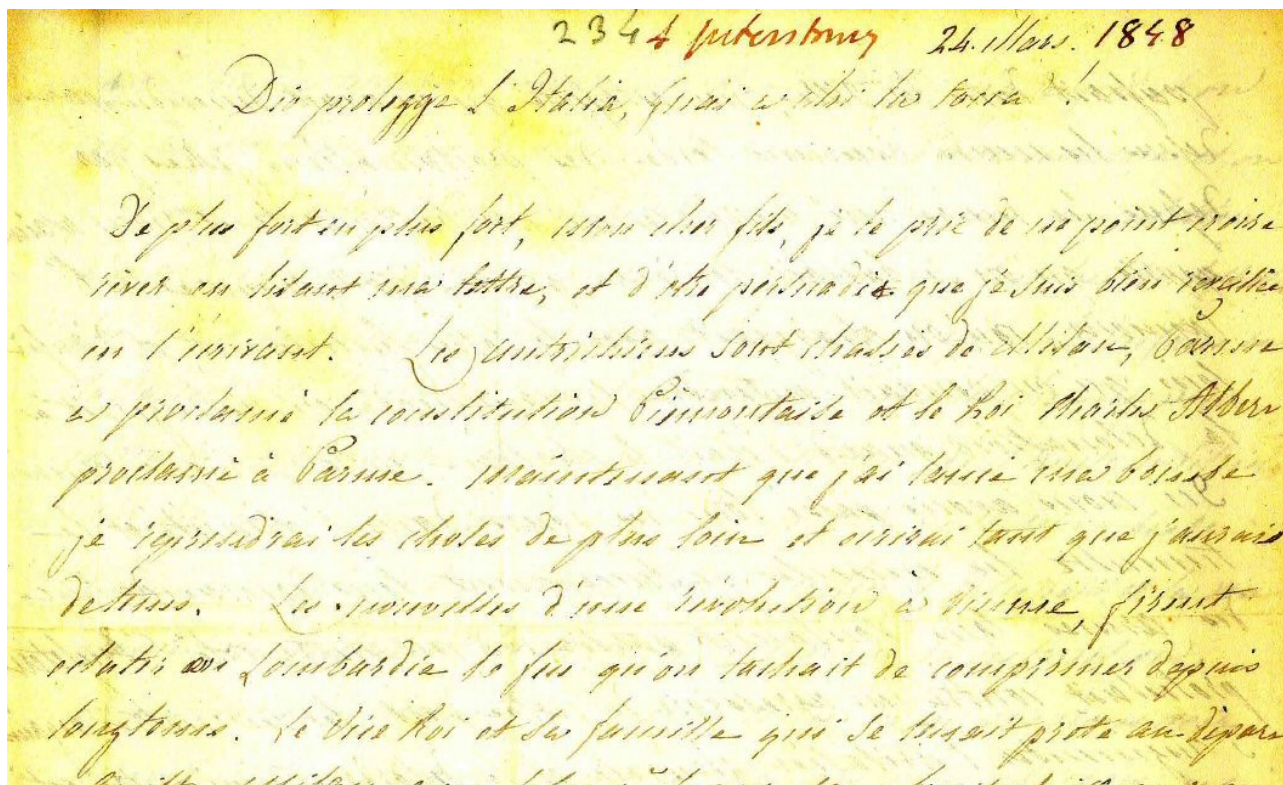 234 4 petersbourg 24. Mars. 1848
Dio protegge L'Italia, guai a chi la tocca !
De plus fort en plus fort, mon cher fils, je te prie de ne point croire
rêver en lisant ma lettre, et d'être persuadée que je suis bien éveillée
en l'écrivant. Les autrichiens sont chassés de Milan, Parme
a proclamé la constitution Piémontaise et le Roi Charles Alber
proclamé à Parme. maintenant que j'ai lancé ma bombe
je reprendrai les choses de plus loin et écrirai tant que j'aurais
de tems. Les nouvelles d'une révolution à vienne, firent
éclater en Lombardie le feu qu'on tachait de comprimer depuis
longtems. Le Vice Roi et sa famille qui se tenait prete au dépar